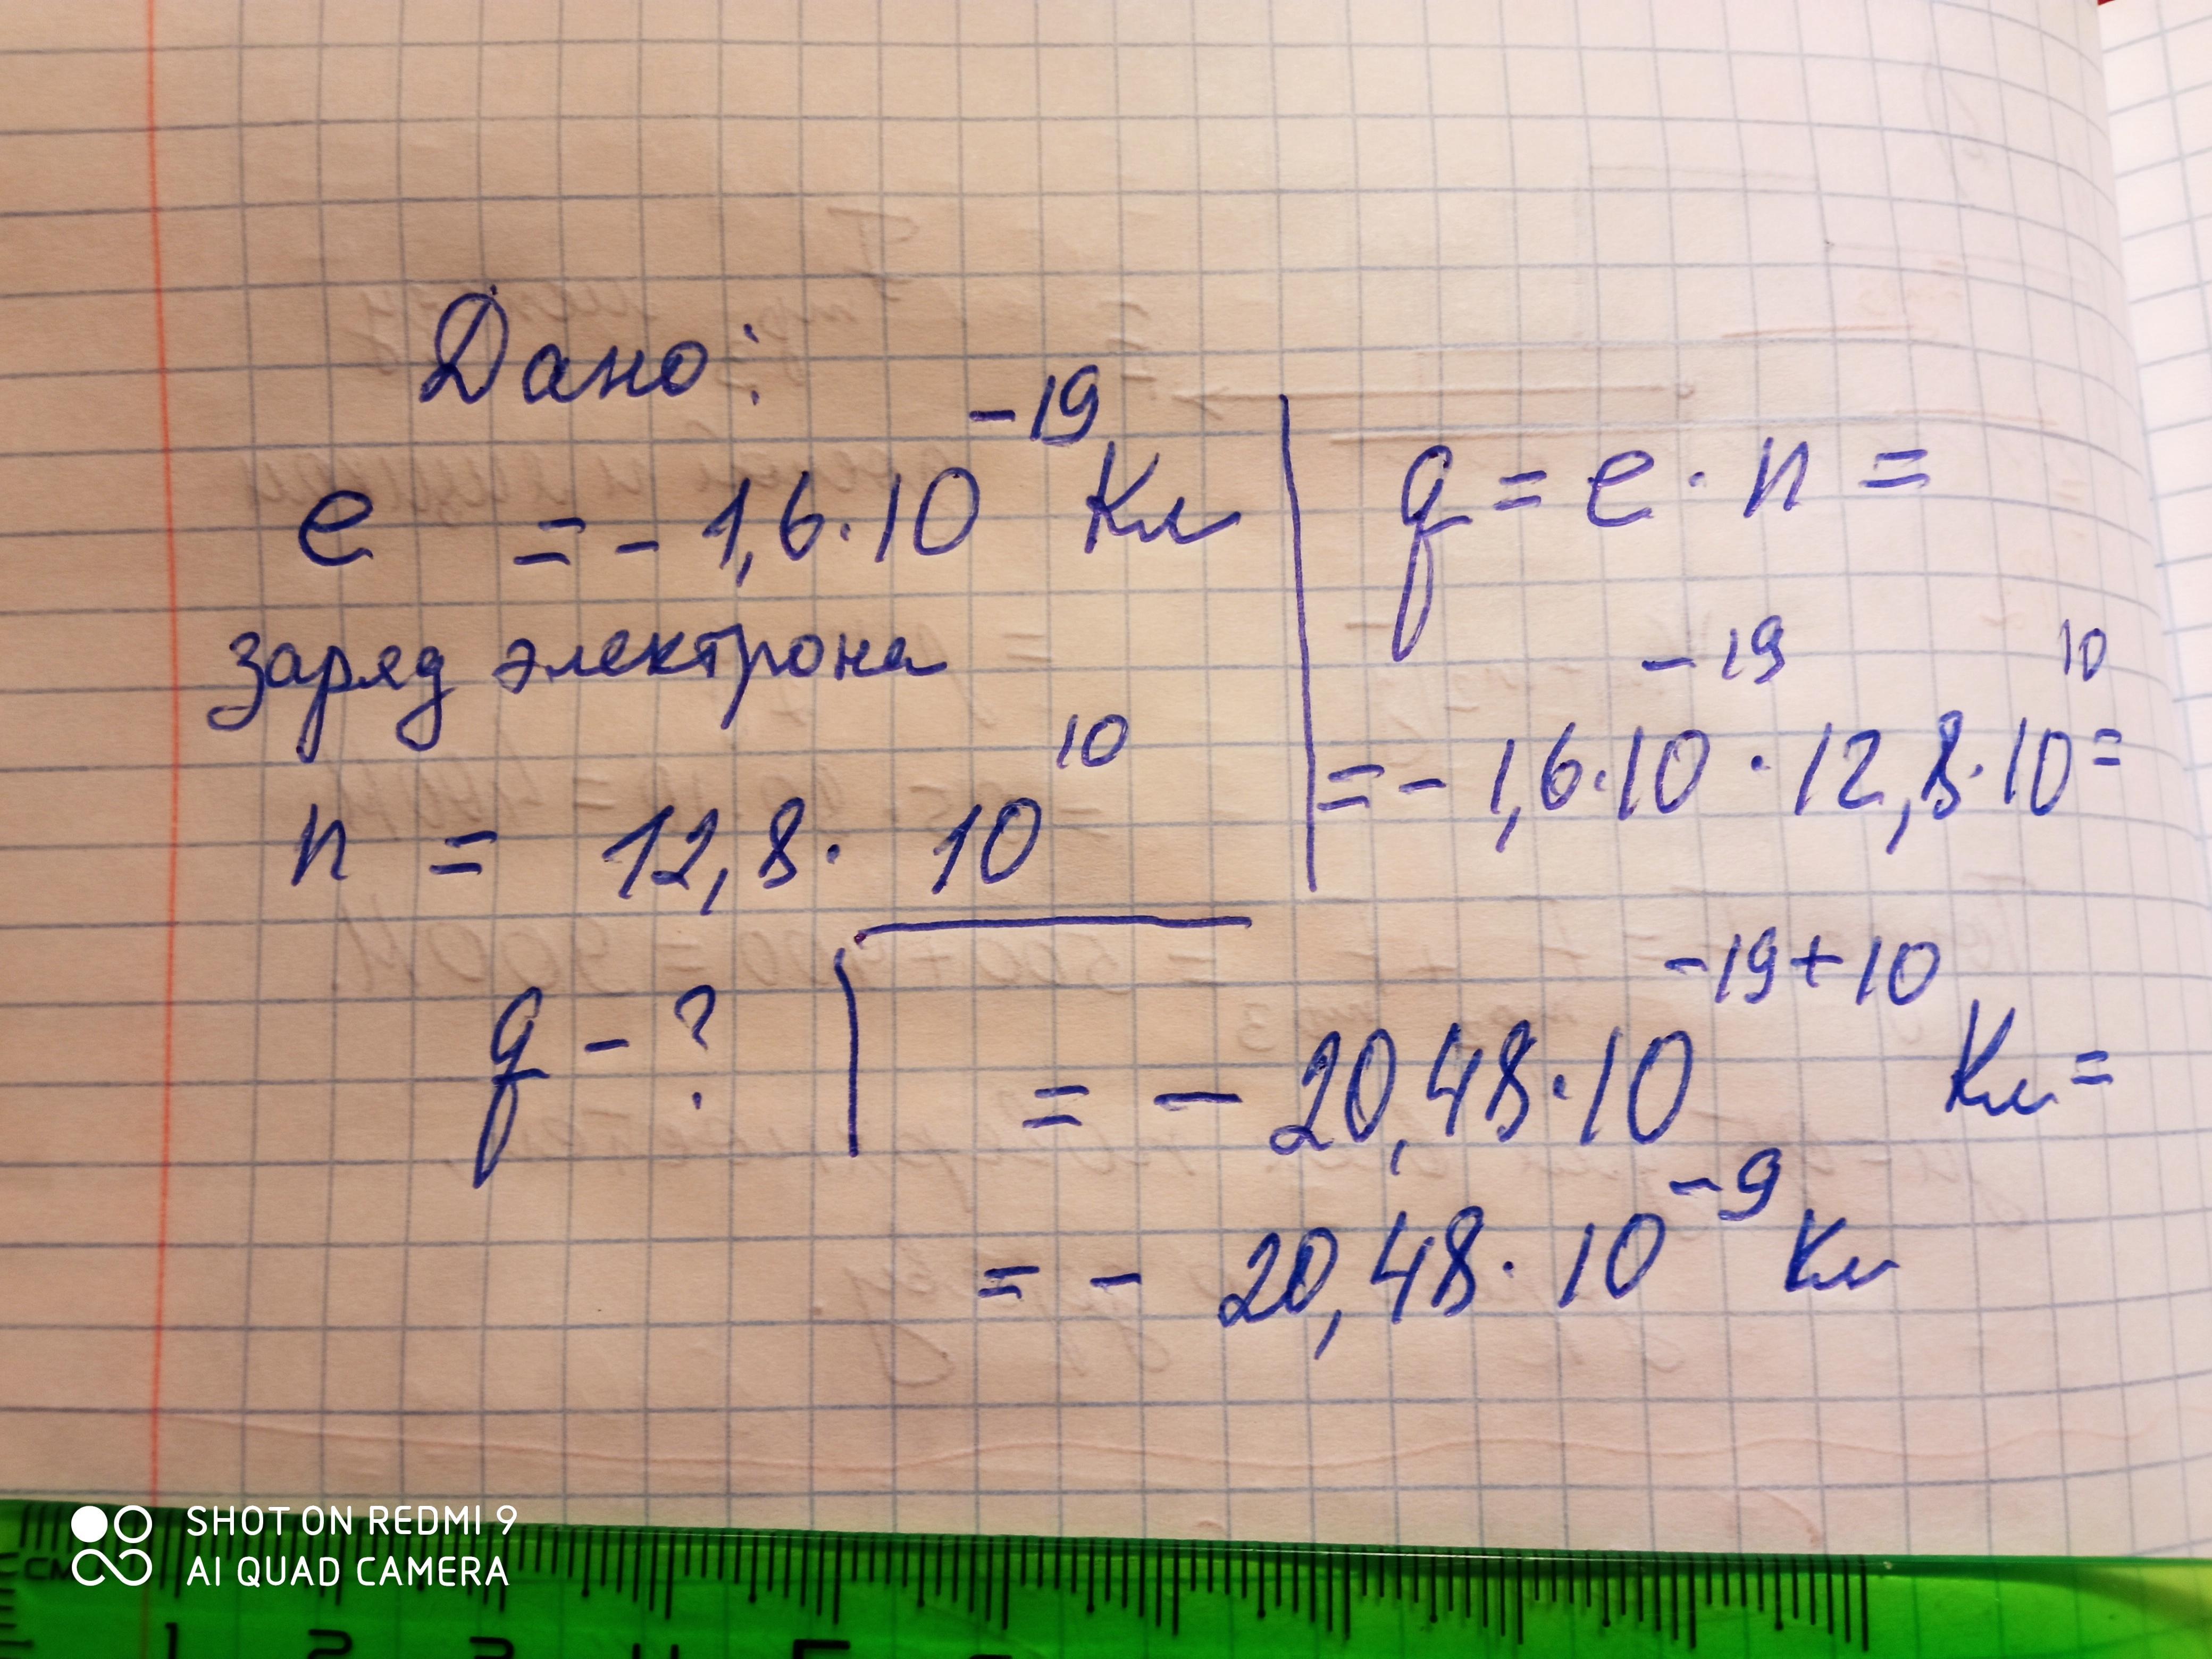 Дано:
e = - 1,6·10⁻¹⁹ Кл
заряд электрона
n = 12,8· 10¹⁰
q - ?
q = e · n =
= - 1,6·10⁻¹⁹ · 12,8·10¹⁰ =
= - 20,48·10⁻¹⁹⁺¹⁰ Кл =
= - 20,48· 10⁻⁹ Кл
SHOT ON REDMI 9
AI QUAD CAMERA
см
1 2 3 4 5